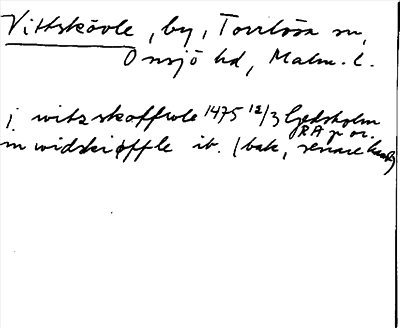 Vittskövle, by, Torrlösa sn,
Onsjö hd, Malm. l.
j witzskoffwle 1475 12/3 Gedsholm
RA p or.
m widskiøffle ib. (bak, senare hand)